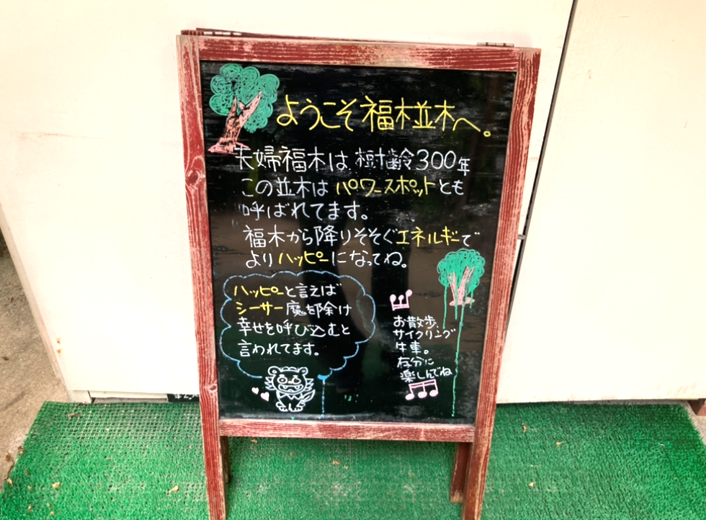 ようこそ福木並木へ。
夫婦福木は樹齢300年
この並木はパワースポットとも
呼ばれてます。
福木から降りそそぐエネルギーで
よりハッピーになってね。
ハッピーと言えば
シーサー魔除け
幸せを呼び込むと
言われてます。
お散歩、
サイクリング
牛車。
存分に
楽しんでね